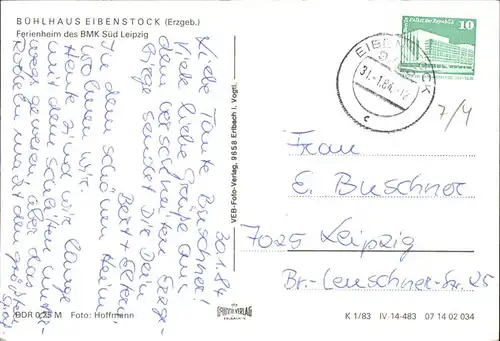 BÜHLHAUS EIBENSTOCK (Erzgeb.)
Ferienheim des BMK Süd Leipzig
30.1.84
Liebe Tante Buschner!
Viele liebe Grüße aus
dem verschneiten Erzge-
birge sendet Dir Dein
Bert + Eltern.
In dem schönen Heim
wohnen wir.
Heute sind wir lange
mit dem Schlitten unter-
wegs gewesen, aber das
Rodeln macht den größten
Spaß
DDR 0,25 M Foto: Hoffmann
VEB-Foto-Verlag, 9658 Erlbach i. Vogtl.
10
EIBENSTOCK
31.-1.84.-12
c
7/4
Frau
E. Buschner
7025 Leipzig
Br.-Leuschner-Str. 25
K 1/83 IV-14-483 07 14 02 034